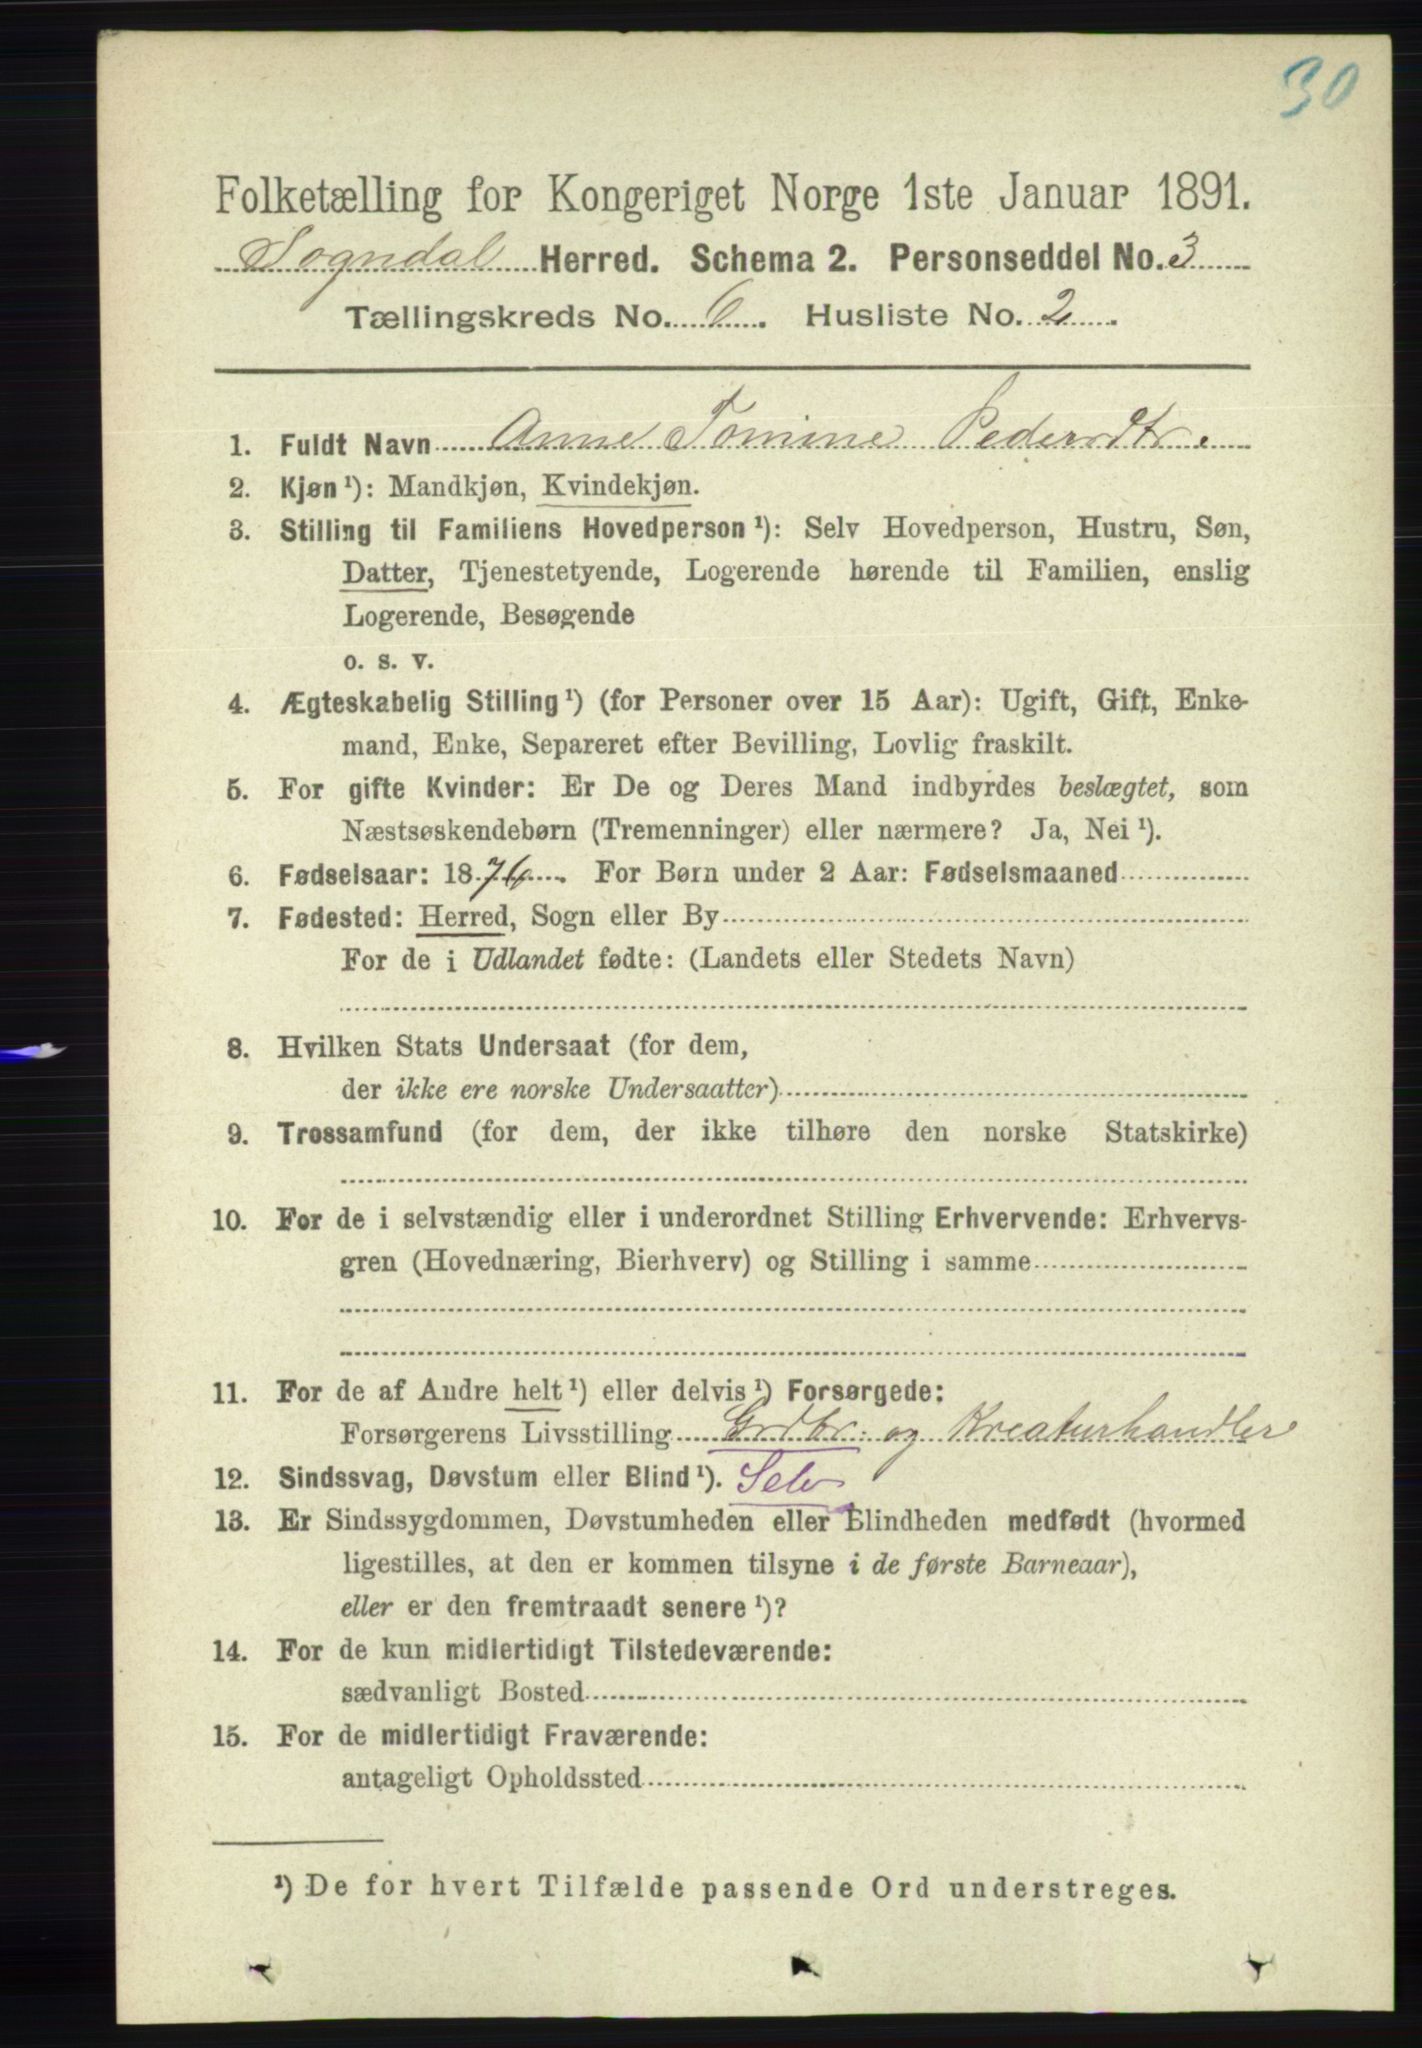 30
Folketælling for Kongeriget Norge 1ste Januar 1891.
Sogndal Herred. Schema 2. Personseddel No. 3
Tællingskreds No. 6. Husliste No. 2.
1. Fuldt Navn Anne Tomine Pedersdtr.
2. Kjøn ¹): Mandkjøn, Kvindekjøn.
3. Stilling til Familiens Hovedperson ¹): Selv Hovedperson, Hustru, Søn,
Datter, Tjenestetyende, Logerende hørende til Familien, enslig
Logerende, Besøgende
o. s. v.
4. Ægteskabelig Stilling ¹) (for Personer over 15 Aar): Ugift, Gift, Enke-
mand, Enke, Separeret efter Bevilling, Lovlig fraskilt.
5. For gifte Kvinder: Er De og Deres Mand indbyrdes beslægtet, som
Næstsøskendebørn (Tremenninger) eller nærmere? Ja, Nei ¹).
6. Fødselsaar: 1876. For Børn under 2 Aar: Fødselsmaaned
7. Fødested: Herred, Sogn eller By
For de i Udlandet fødte: (Landets eller Stedets Navn)
8. Hvilken Stats Undersaat (for dem,
der ikke ere norske Undersaatter)
9. Trossamfund (for dem, der ikke tilhøre den norske Statskirke)
10. For de i selvstændig eller i underordnet Stilling Erhvervende: Erhvervs-
gren (Hovednæring, Bierhverv) og Stilling i samme
11. For de af Andre helt ¹) eller delvis ¹) Forsørgede:
Forsørgerens Livsstilling Grdbr. og Kreaturhandler
12. Sindssvag, Døvstum eller Blind ¹). Selv
13. Er Sindssygdommen, Døvstumheden eller Blindheden medfødt (hvormed
ligestilles, at den er kommen tilsyne i de første Barneaar),
eller er den fremtraadt senere ¹)?
14. For de kun midlertidigt Tilstedeværende:
sædvanligt Bosted
15. For de midlertidigt Fraværende:
antageligt Opholdssted
¹) De for hvert Tilfælde passende Ord understreges.